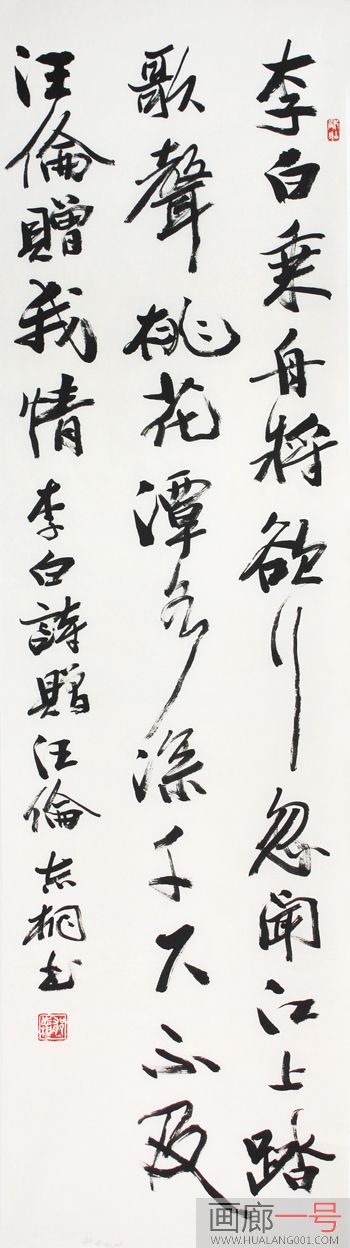 李白乘舟將欲行忽聞江上踏
歌聲桃花潭水深千尺不及
汪倫贈我情 李白詩贈汪倫 志桐书
画廊一号
WWW.HUALANG001.COM